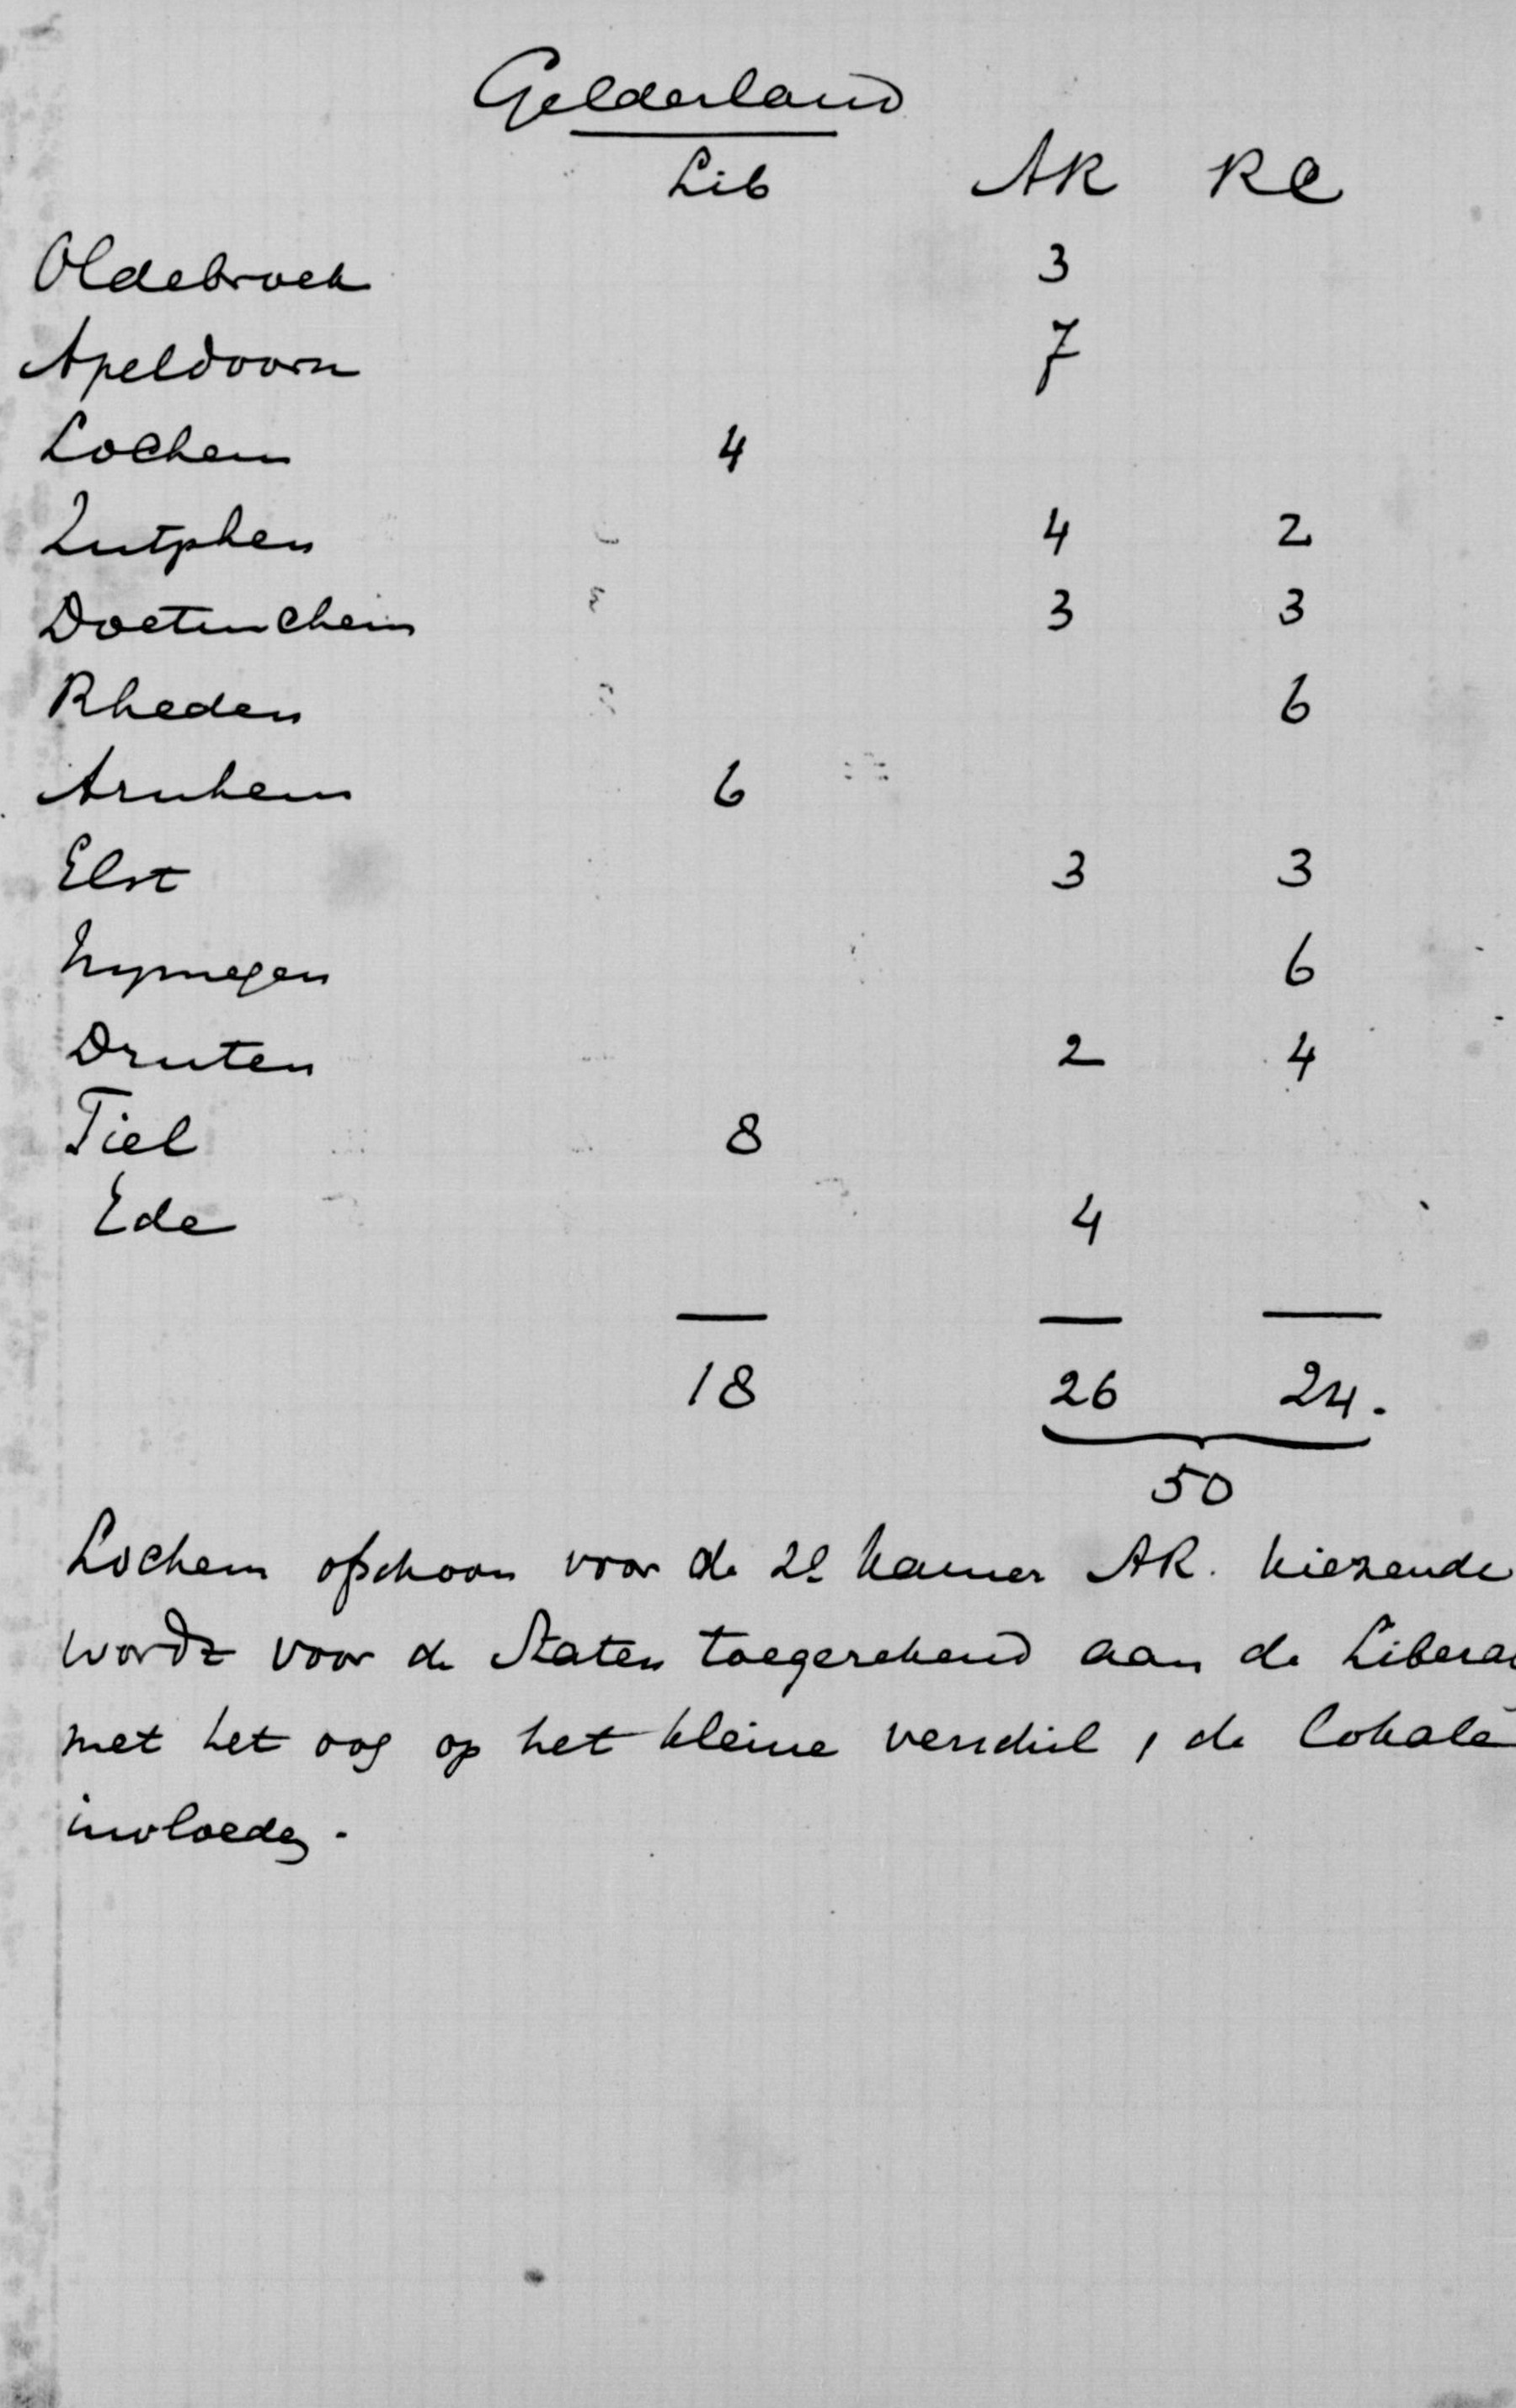 Gelderland
Lib AR RC
Oldebroek 3
Apeldoorn 7
Lochem 4
Zutphen 4 2
Doetinchem 3 3
Rheden 6
Arnhem 6
Elst 3 3
Nymegen 6
Druten 2 4
Tiel 8
Ede 4
18 26 24.
50
Lochem ofschoon voor de 2e Kamer AR. kiezende
wordt voor de Staten toegerekend aan de Libera
met het oog op het kleine verschil, de lokale
invloeden.